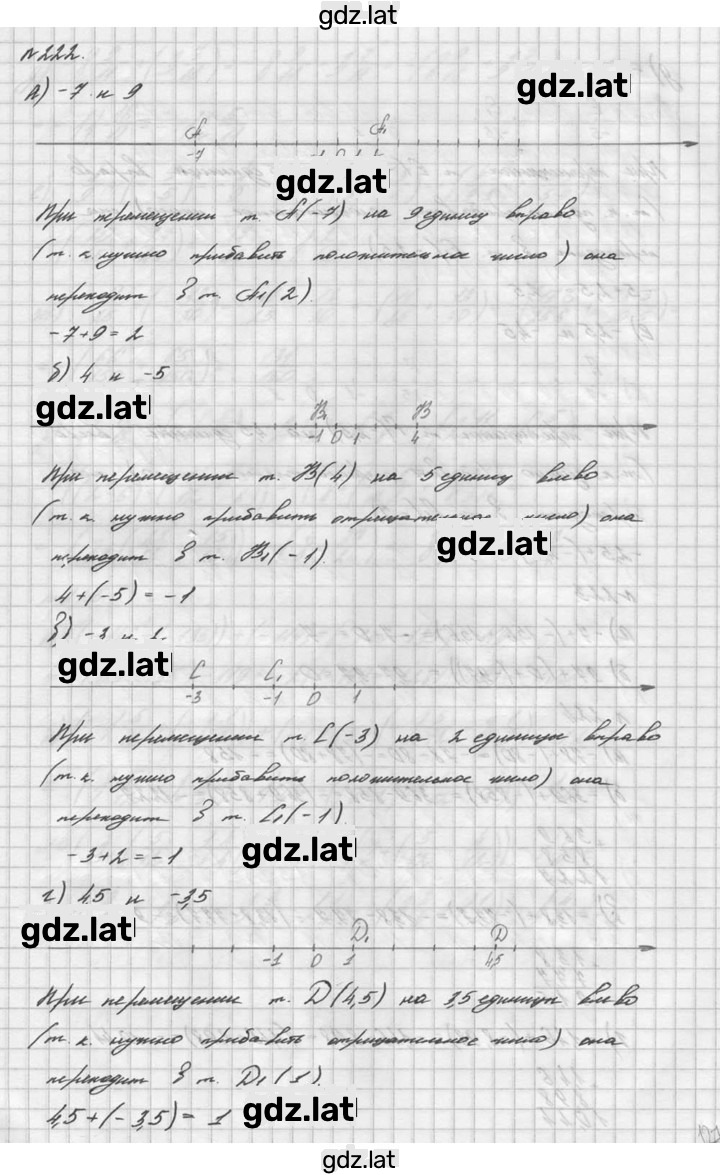 gdz.lat
№222.
а) -7 и 9
gdz.lat
A A₁
-7 -1 0 1
gdz.lat
При перемещении т. A(-7) на 9 единиц вправо
(т.к. нужно прибавить положительное число) она
переходит в т. A₁(2).
-7+9=2
б) 4 и -5
gdz.lat
B₁ B
-1 0 1 4
При перемещении т. B(4) на 5 единиц влево
(т.к. нужно прибавить отрицательное число) она
gdz.lat
переходит в т. B₁(-1).
4+(-5)=-1
в) -3 и
gdz.lat
C C₁
-3 -1 0 1
При перемещении т. C(-3) на 2 единицы вправо
(т.к. нужно прибавить положительное число) она
переходит в т. C₁(-1).
gdz.lat
-3+2=-1
г) 4,5 и -3,5
gdz.lat
D₁ D
-1 0 1 4,5
При перемещении т. D(4,5) на 3,5 единицы влево
(т.к. нужно прибавить отрицательное число) она
переходит в т. D₁(1).
4,5+(-3,5)=1
gdz.lat
gdz.lat